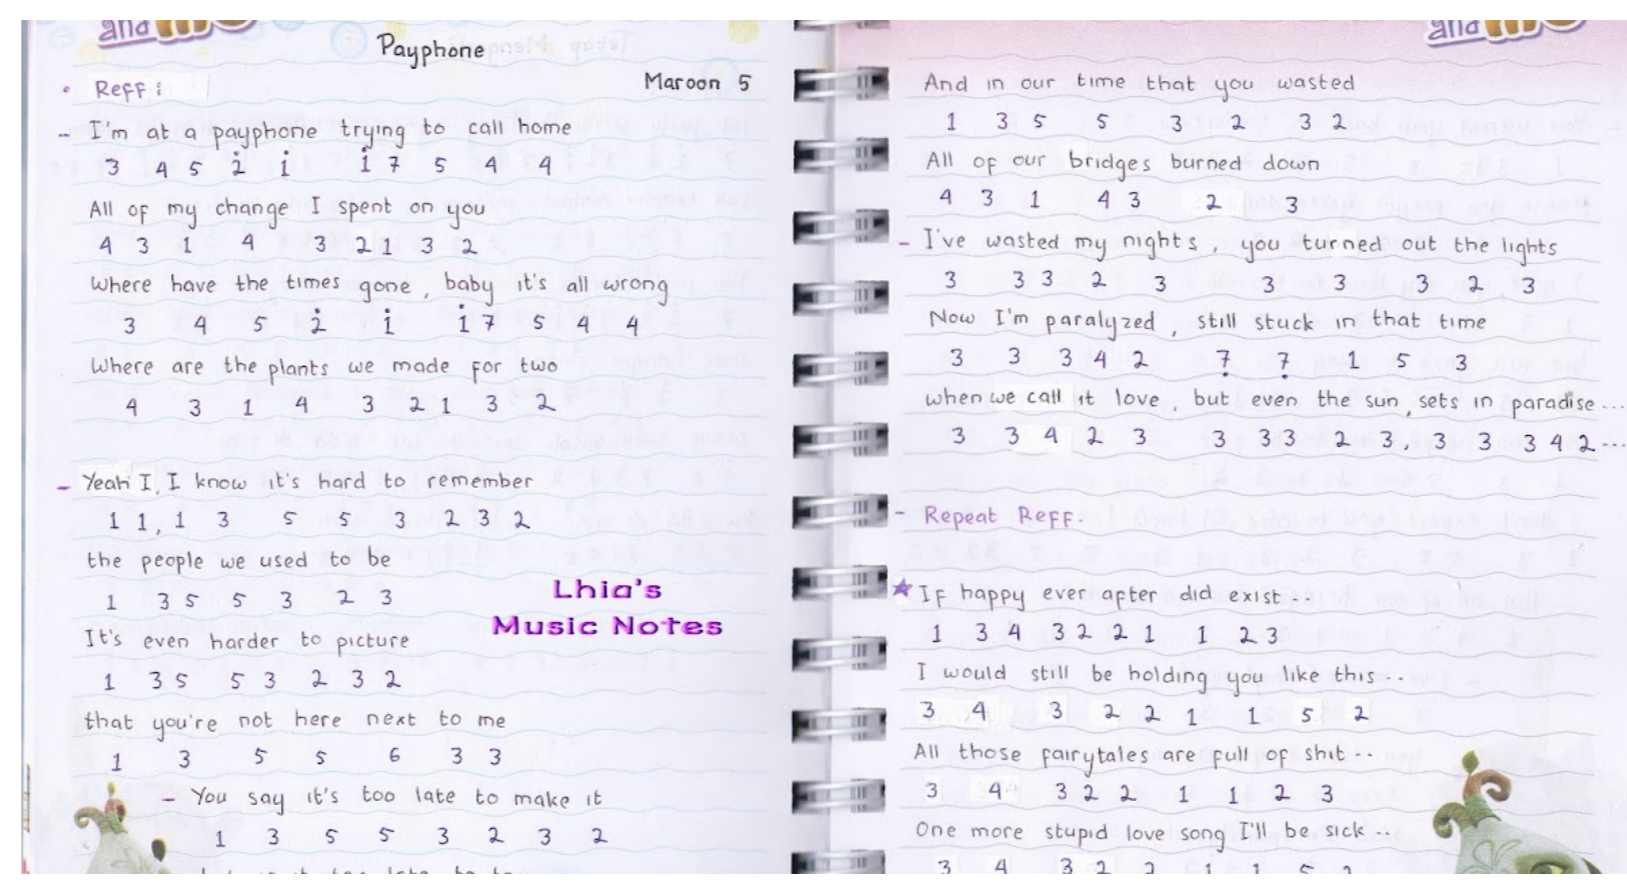 and
Payphone
Maroon 5
• Reff :
- I'm at a payphone trying to call home
3 4 5 2̇ 1̇ 1̇ 7 5 4 4
All of my change I spent on you
4 3 1 4 3 2 1 3 2
Where have the times gone, baby it's all wrong
3 4 5 2̇ 1̇ 1̇ 7 5 4 4
Where are the plants we made for two
4 3 1 4 3 2 1 3 2
- Yeah I, I know it's hard to remember
1 1, 1 3 5 5 3 2 3 2
the people we used to be
1 3 5 5 3 2 3
It's even harder to picture
1 3 5 5 3 2 3 2
that you're not here next to me
1 3 5 5 6 3 3
- You say it's too late to make it
1 3 5 5 3 2 3 2
Lhia's
Music Notes
and
And in our time that you wasted
1 3 5 5 3 2 3 2
All of our bridges burned down
4 3 1 4 3 2 3
- I've wasted my nights, you turned out the lights
3 3 3 2 3 3 3 3 2 3
Now I'm paralyzed, still stuck in that time
3 3 3 4 2 7̣ 7̣ 1 5 3
when we call it love, but even the sun, sets in paradise...
3 3 4 2 3 3 3 3 2 3, 3 3 3 4 2...
- Repeat Reff.
★ If happy ever after did exist..
1 3 4 3 2 2 1 1 2 3
I would still be holding you like this..
3 4 3 2 2 1 1 5 2
All those fairytales are full of shit..
3 4 3 2 2 1 1 2 3
One more stupid love song I'll be sick..
3 4 3 2 2 1 1 5 2